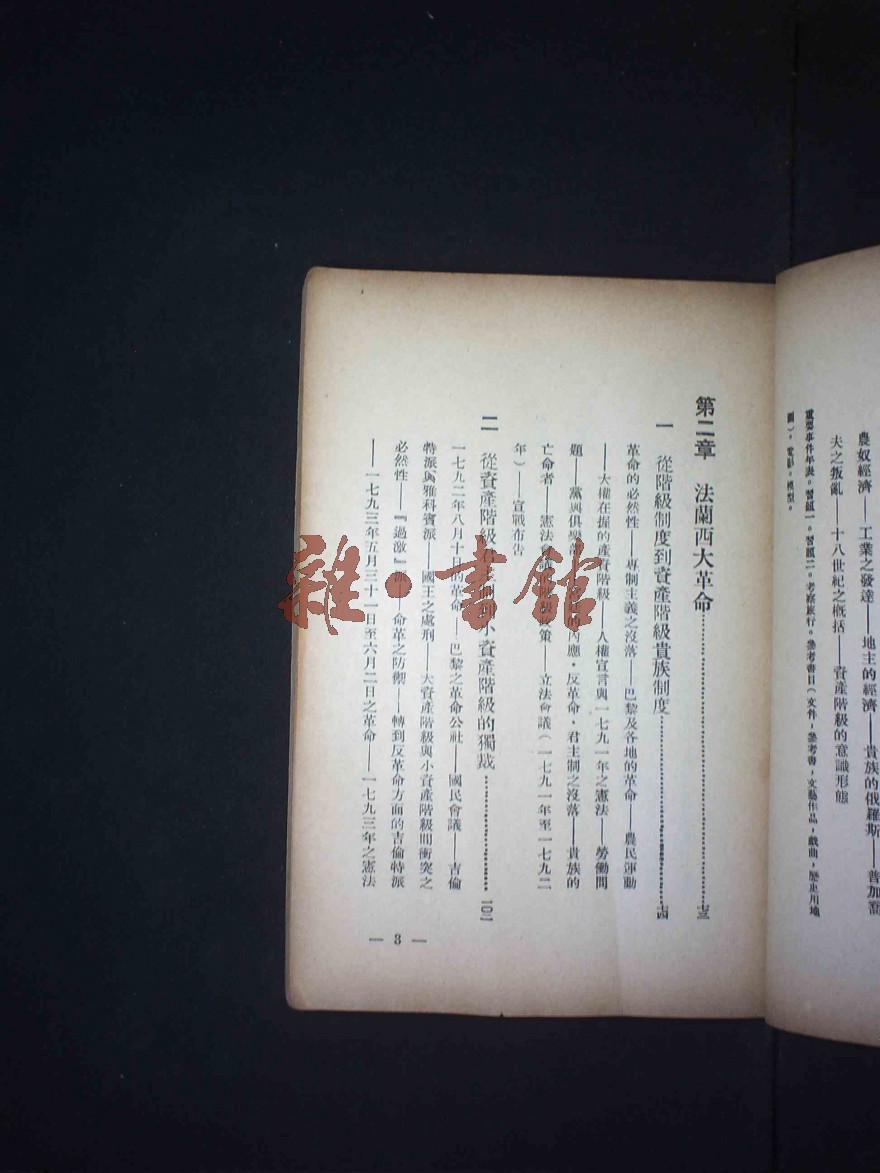 農奴經濟——工業之發達——地主的經濟——貴族的俄羅斯——普加喬
夫之叛亂——十八世紀之概括——資產階級的意識形態
重要事件年表。習題一。習題二。考察旅行。參考書目(文件,參考書,文藝作品,戲曲,歷史用地
圖)。電影。模型。
第二章 法蘭西大革命……七三
一 從階級制度到資產階級貴族制度……七四
革命的必然性——專制主義之沒落——巴黎及各地的革命——農民運動
——大權在握的產資階級——人權宣言與一七九一年之憲法——勞働問
題——黨與俱樂部——的內應·反革命·君主制之沒落——貴族的
亡命者——憲法會議——政策——立法會議(一七九一年至一七九二
年)——宣戰布告
二 從資產階級小資產階級的獨裁……一〇二
一七九二年八月十日的革命——巴黎之革命公社——國民會議——吉倫
特派與雅科賓派——國王之處刑——大資產階級與小資產階級間衝突之
必然性——『過激』派——命革之防禦——轉到反革命方面的吉倫特派
——一七九三年五月三十一日至六月二日之革命——一七九三年之憲法
— 3 —
雜·書館